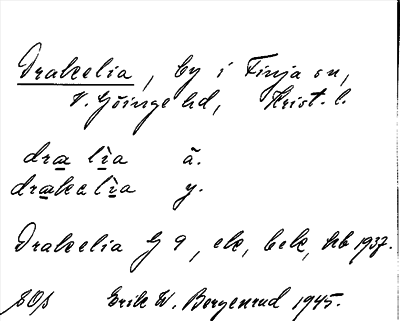 Drakelia, by i Finja sn,
V. Göinge hd, Krist. l.
dra lìa ä.
drakalìa y.
Drakelia G 9, ek, bek, hb 1937.
Erik W. Bergenrud 1945.